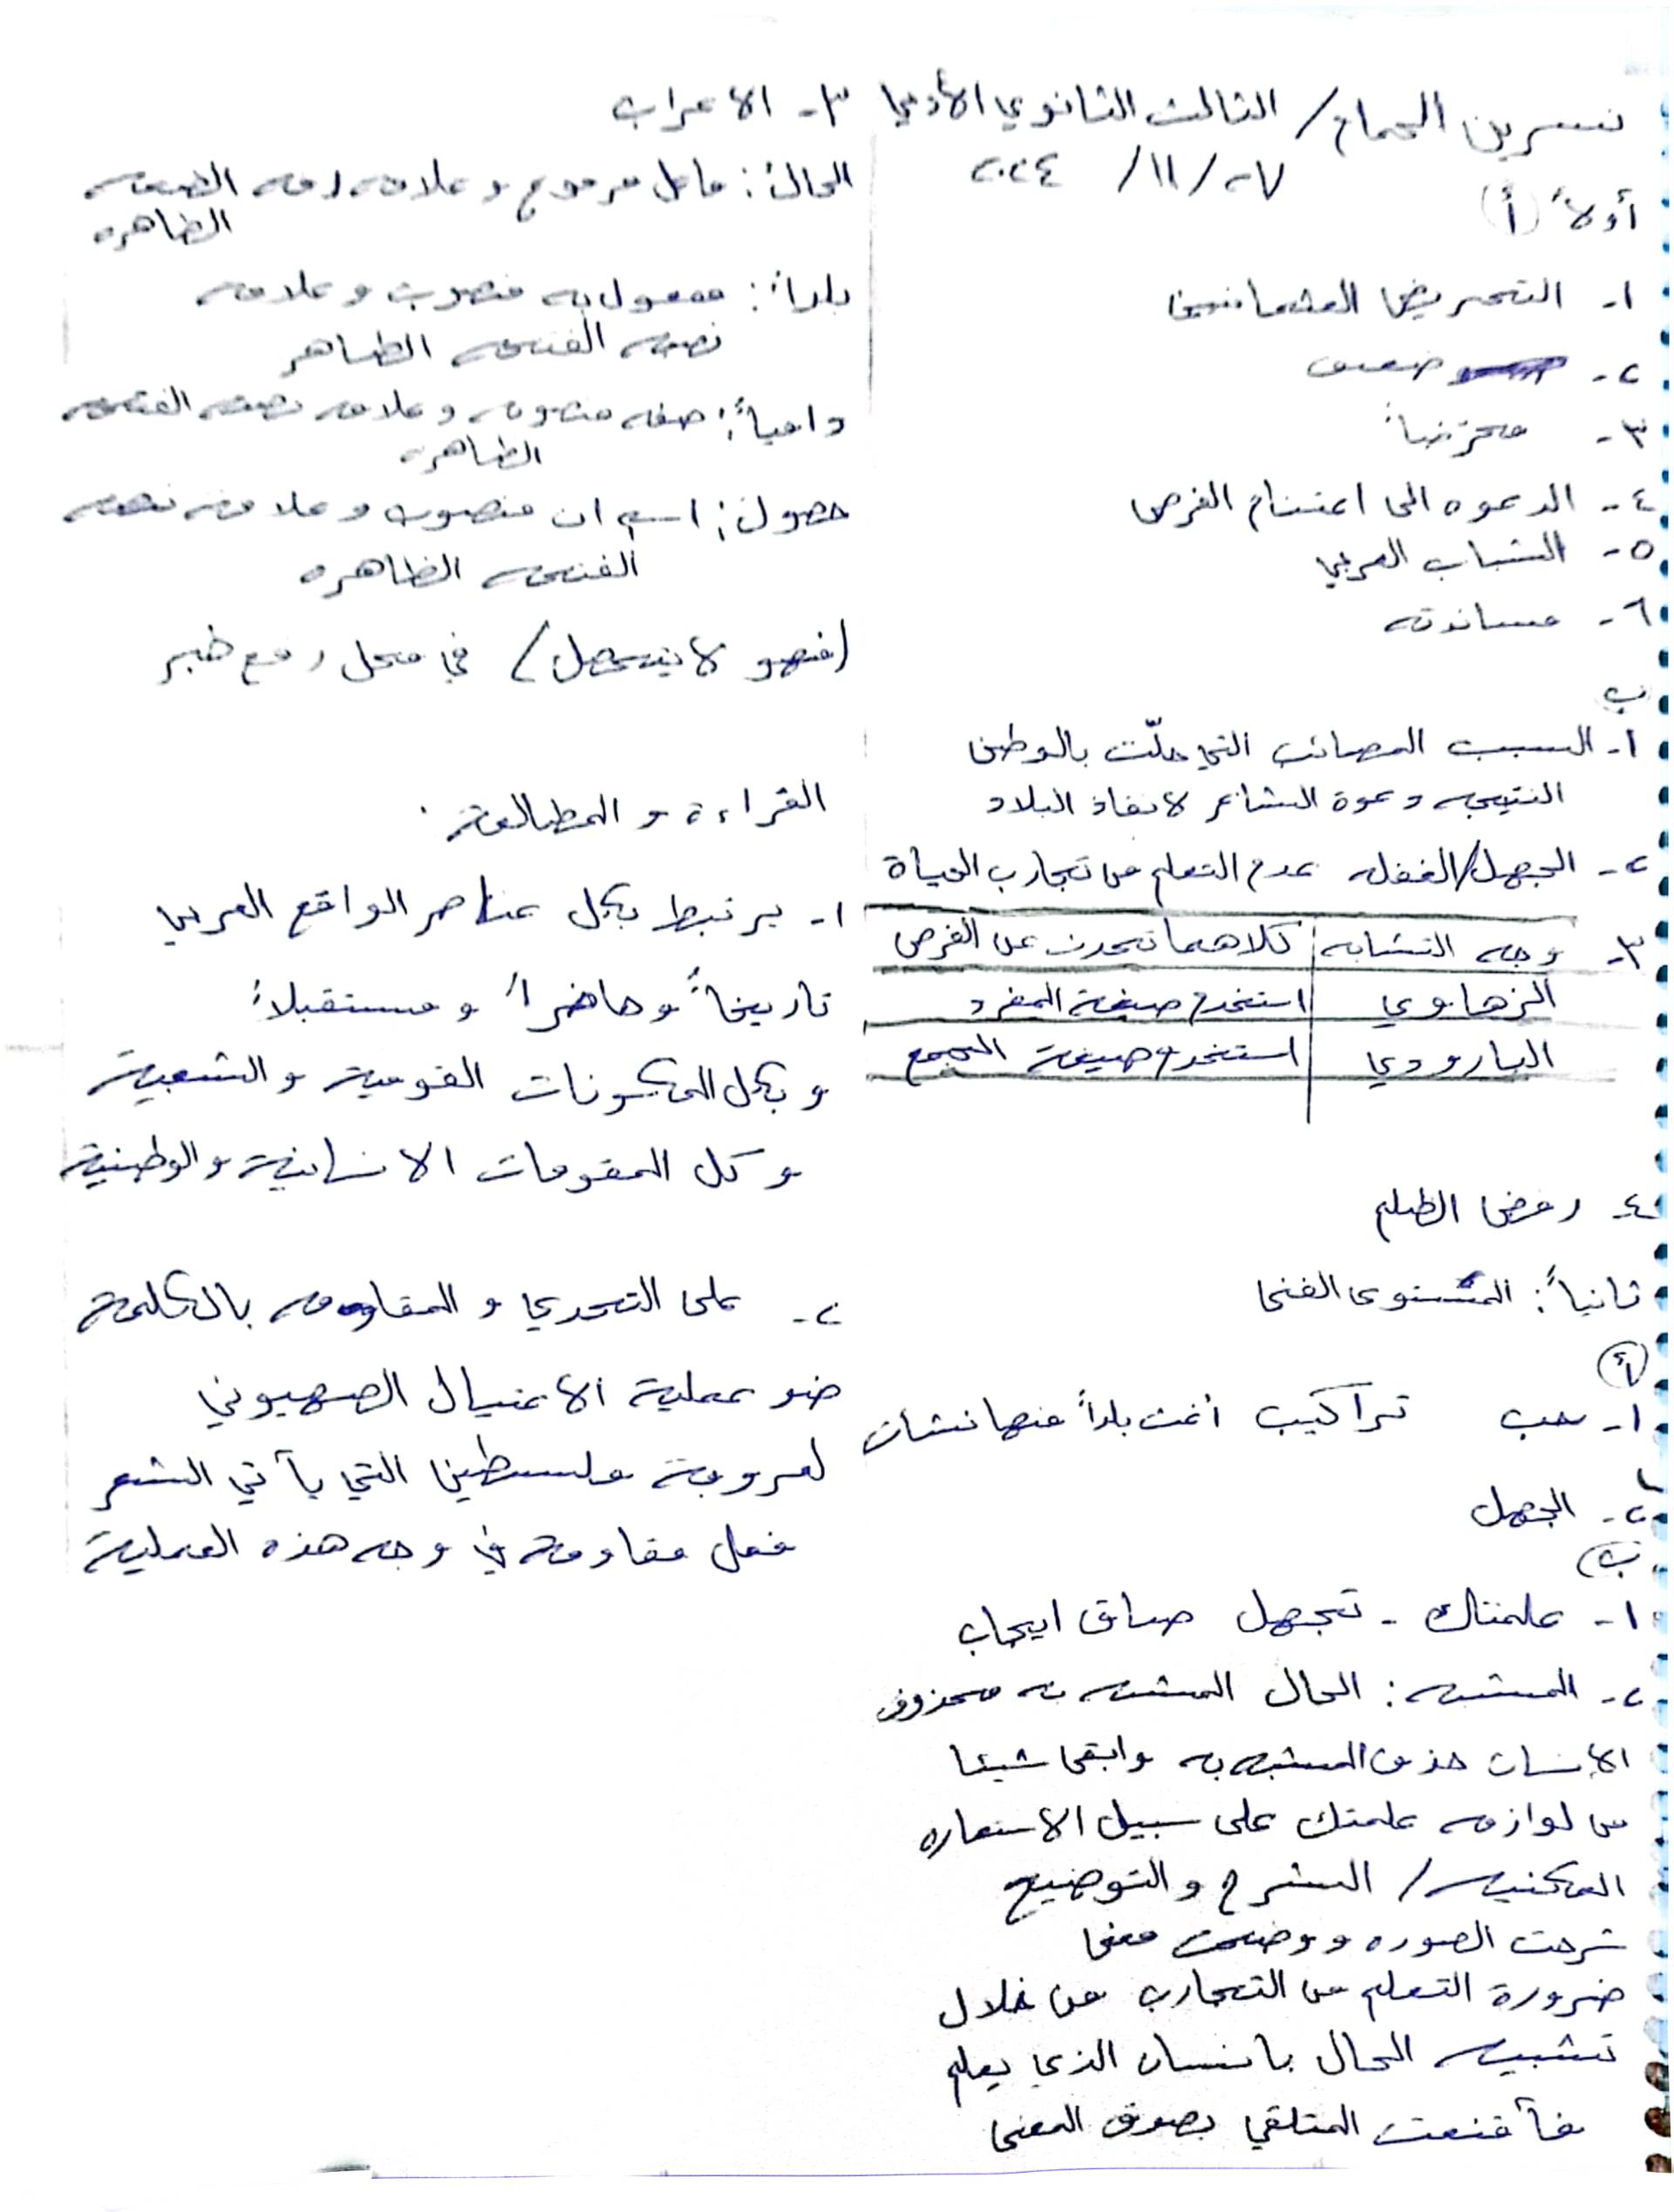 نسرين الحمام / الثالث الثانوي الأدبي
٢٧ / ١١ / ٢٠٢٤
أولاً (أ)
١- التحريض العثمانيين
٢- ضعيف
٣- محزناً
٤- الدعوه الى اغتنام الفرص
٥- الشباب العربي
٦- مساندته
ب
١- السبب المصائب التي حلّت بالوطن
النتيجه دعوة الشاعر لانقاذ البلاد
٢- الجهل/الغفله عدم التعلم من تجارب الحياة
٣- وجه التشابه | كلاهما تحدث عن الفرص
الزهاوي | استخدم صيغة المفرد
البارودي | استخدم صيغة الجمع
٤- رفض الظلم
ثانياً: المستوى الفني
أ
١- حب تراكيب أغث بلداً منها نشأت
٢- الجهل
ب
١- علمتك - تجهل طباق ايجاب
٢- المشبه: الحال المشبه به محذوف
الانسان حذف المشبه به وابقى شيئا
من لوازمه علمتك على سبيل الاستعاره
المكنيه / الشرح والتوضيح
شرحت الصوره ووضحت معنى
ضرورة التعلم من التجارب من خلال
تشبيه الحال بانسان الذي يعلم
فأقنعت المتلقي بصوره المعنى
٣- الاعراب
الحالُ: فاعل مرفوع وعلامه رفعه الضمه
الظاهره
بلداً: مفعول به منصوب وعلامه
نصبه الفتحه الظاهر
داعياً: صفه منصوبه وعلامه نصبه الفتحه
الظاهره
حصول: اسم ان منصوب وعلامه نصبه
الفتحه الظاهره
(فهو لا يتمهل) في محل رفع خبر
القراءة والمطالعة.
١- يرتبط بكل عناصر الواقع العربي
تاريخاً وحاضراً ومستقبلاً
وبكل المكونات القومية والشعبية
وكل المقومات الانسانية والوطنية
٢- على التحدي والمقاومه بالكلمة
ضد عملية الاغتيال الصهيوني
لعروبة فلسطين التي يأتي الشعر
فعل مقاومة في وجه هذه العملية